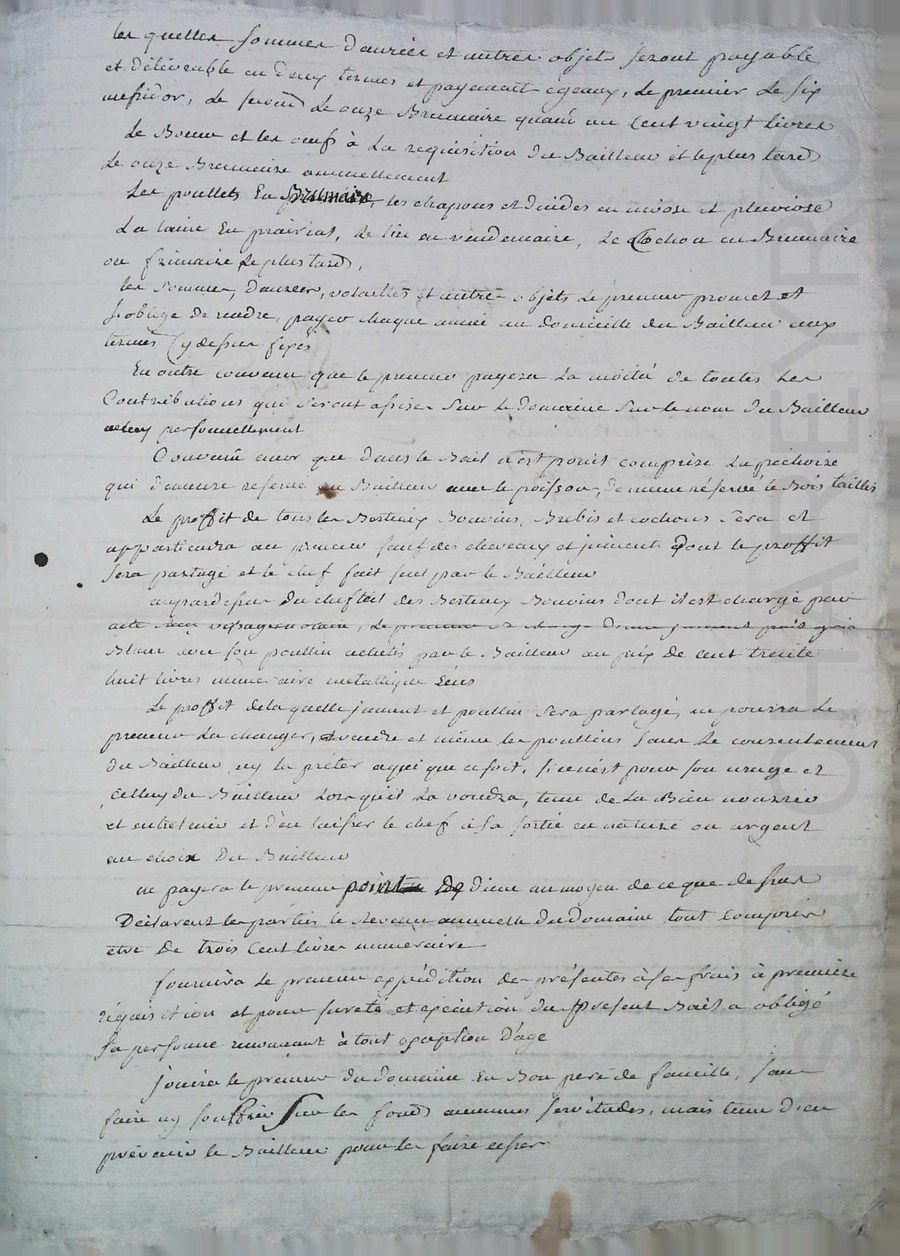 les quelles sommes danrées et autres objets seront payable
et délivrable en deux termes et payement égeaux, le premier le six
mesidor, le second le onze Brumaire quant au cent vingt livres
Le Beurre et les oeufs à la requisition du Bailleur et le plus tard
Le onze Brumaire annuellement
Les poullets en Brumaire, les chapons et dindes en nivose et pluviose
La laine en prairial, le lin en vendemaire, le Cochon en Brumaire
ou frimaire le plus tard,
les sommes, danrées, volailles et autres objets le preneur promet et
s'oblige de rendre, payer chaque année au domicille du Bailleur aux
termes cy dessus fixés
En outre convenu que le preneur payera la moitié de toutes les
Contributions qui seront assises sur le domaine sur le nom du Bailleur
personnellement
Convenu que dans le Bail n'est point comprise la pechoire
qui demeure reservé au Bailleur avec le poisson, de meme réservé le Bois taillis
Le proffit de tous les Bestiaux Bouvins, Brebis et cochons sera et
appartiendra au preneur sauf des cheveaux et juments dont le proffit
sera partagé et le chef fait seul par le Bailleur
du chestel des Bestiaux Bouvins dont il est chargé par
acte notaire, le preneur se charge d'une jument poil gris
Blanc avec son poullin achetés par le Bailleur au prix de cent trente
huit livres numeraire metallique
Le proffit de la quelle jument et poullin sera partagé, ne pourra le
preneur la changer, vendre et même les poullins sans le consentement
du Bailleur ny la preter a qui que ce soit, si ce n'est pour son usage et
Celluy du Bailleur lorsqu'il la voudra, tenu de la Bien nourrir
et entretenir et d'en laisser le chef à sa sortie en nature ou argent
au choix du Bailleur
ne payera le preneur point de dime au moyen de ce que dessus
Déclarent les parties le Revenu annuelle du domaine tout compris
etre de trois cent livres numeraire
fournira le preneur expédition des présentes à ses frais à premiere
réquisition et pour sureté et exécution du Présent Bail a obligé
sa personne renonçant à tout exception d'age
Jouira le preneur du domaine en Bon pere de famille, sans
faire ny souffrir sur les fonds aucunes servitudes, mais tenu d'en
prévenir le Bailleur pour les faire cesser
CHAREYRO